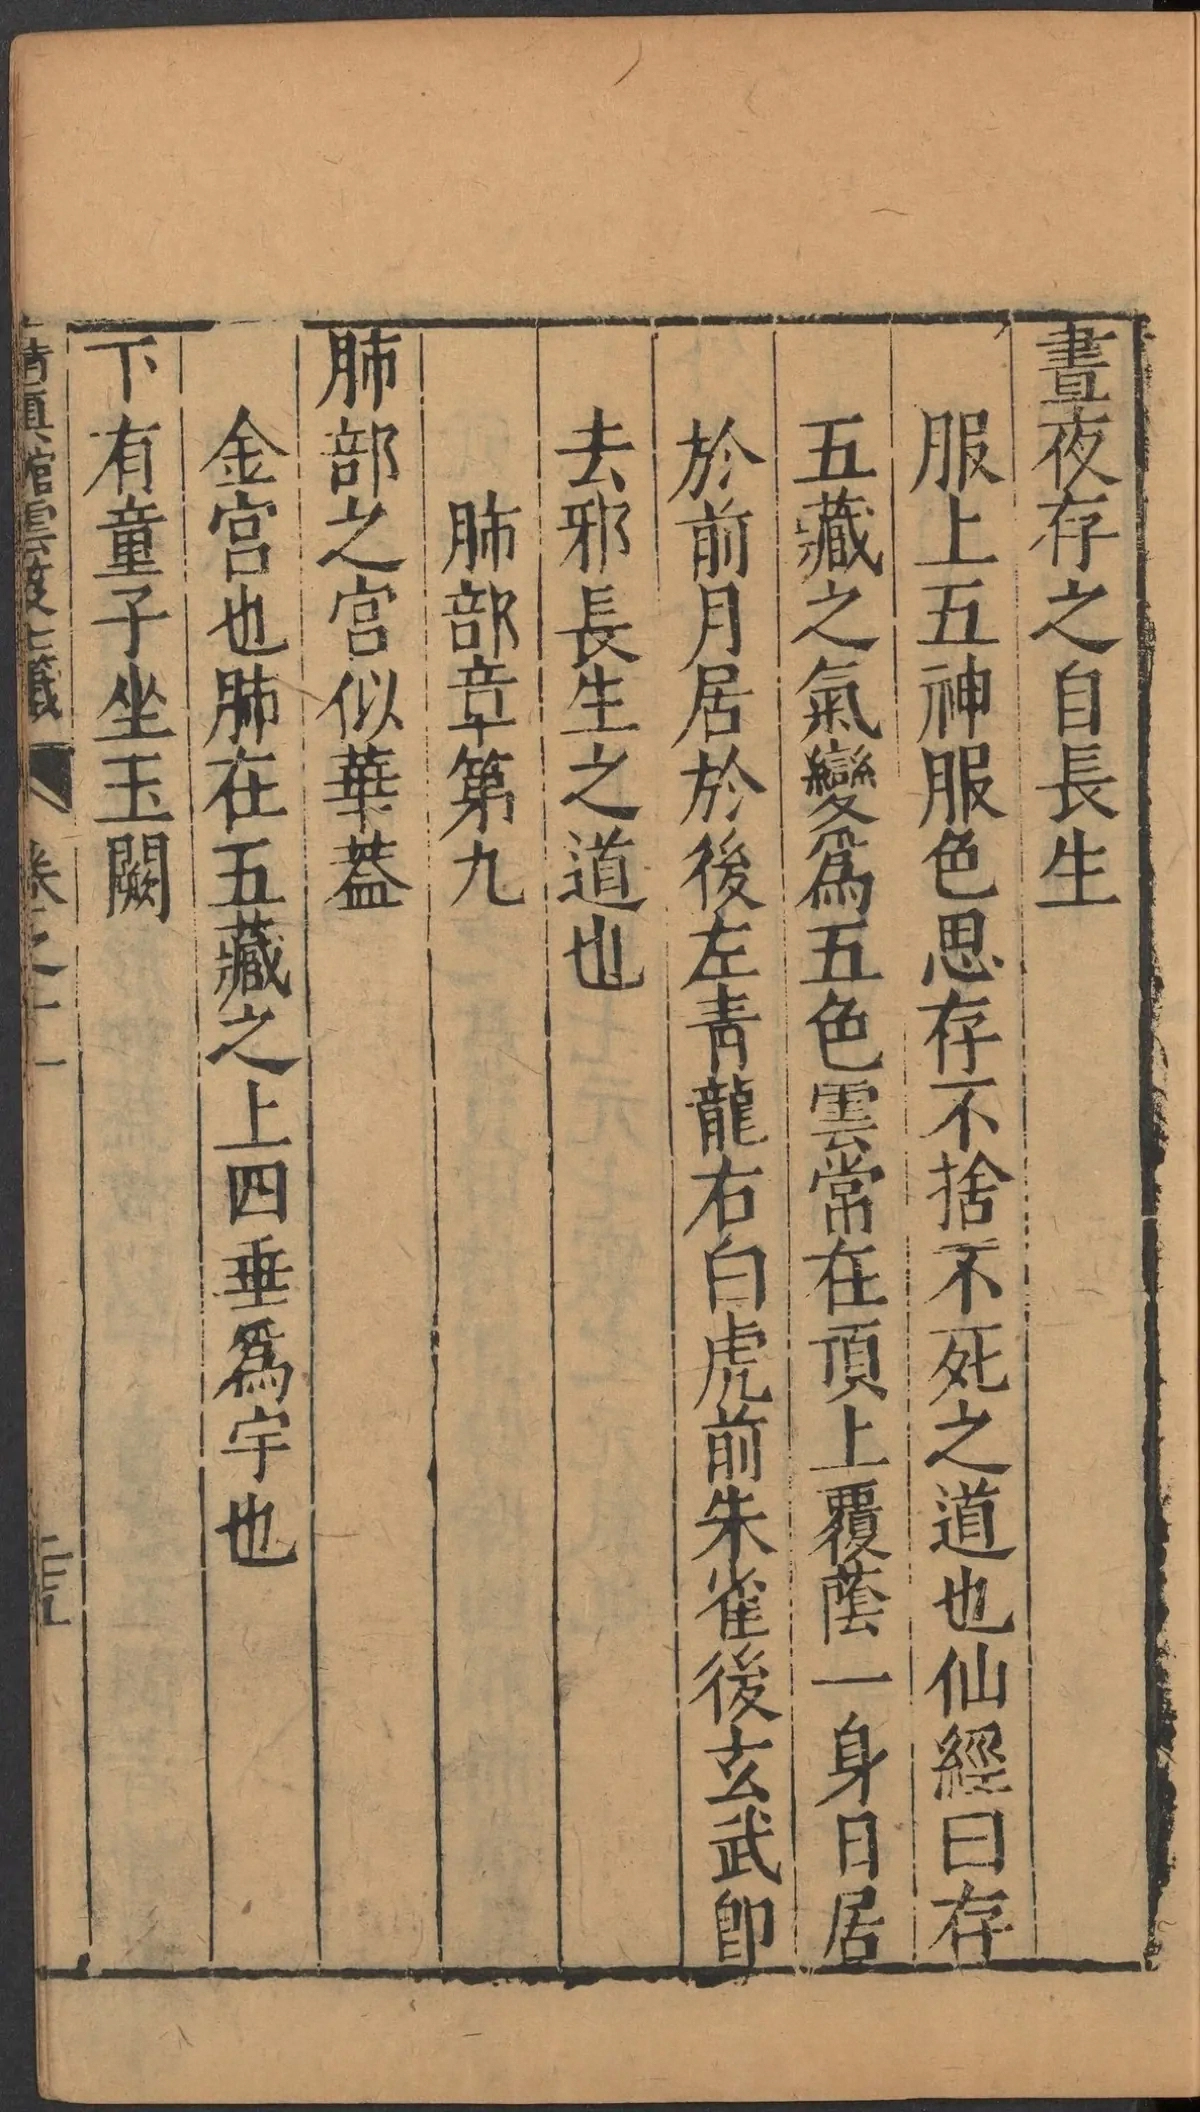 晝夜存之自長生
服上五神服色思存不捨不死之道也仙經曰存
五藏之氣變爲五色雲常在頂上覆蔭一身日居
於前月居於後左青龍右白虎前朱雀後玄武卽
去邪長生之道也
肺部章第九
肺部之宮似華蓋
金宮也肺在五藏之上四垂爲宇也
下有童子坐玉闕
清真館雲笈七籤
卷之十一